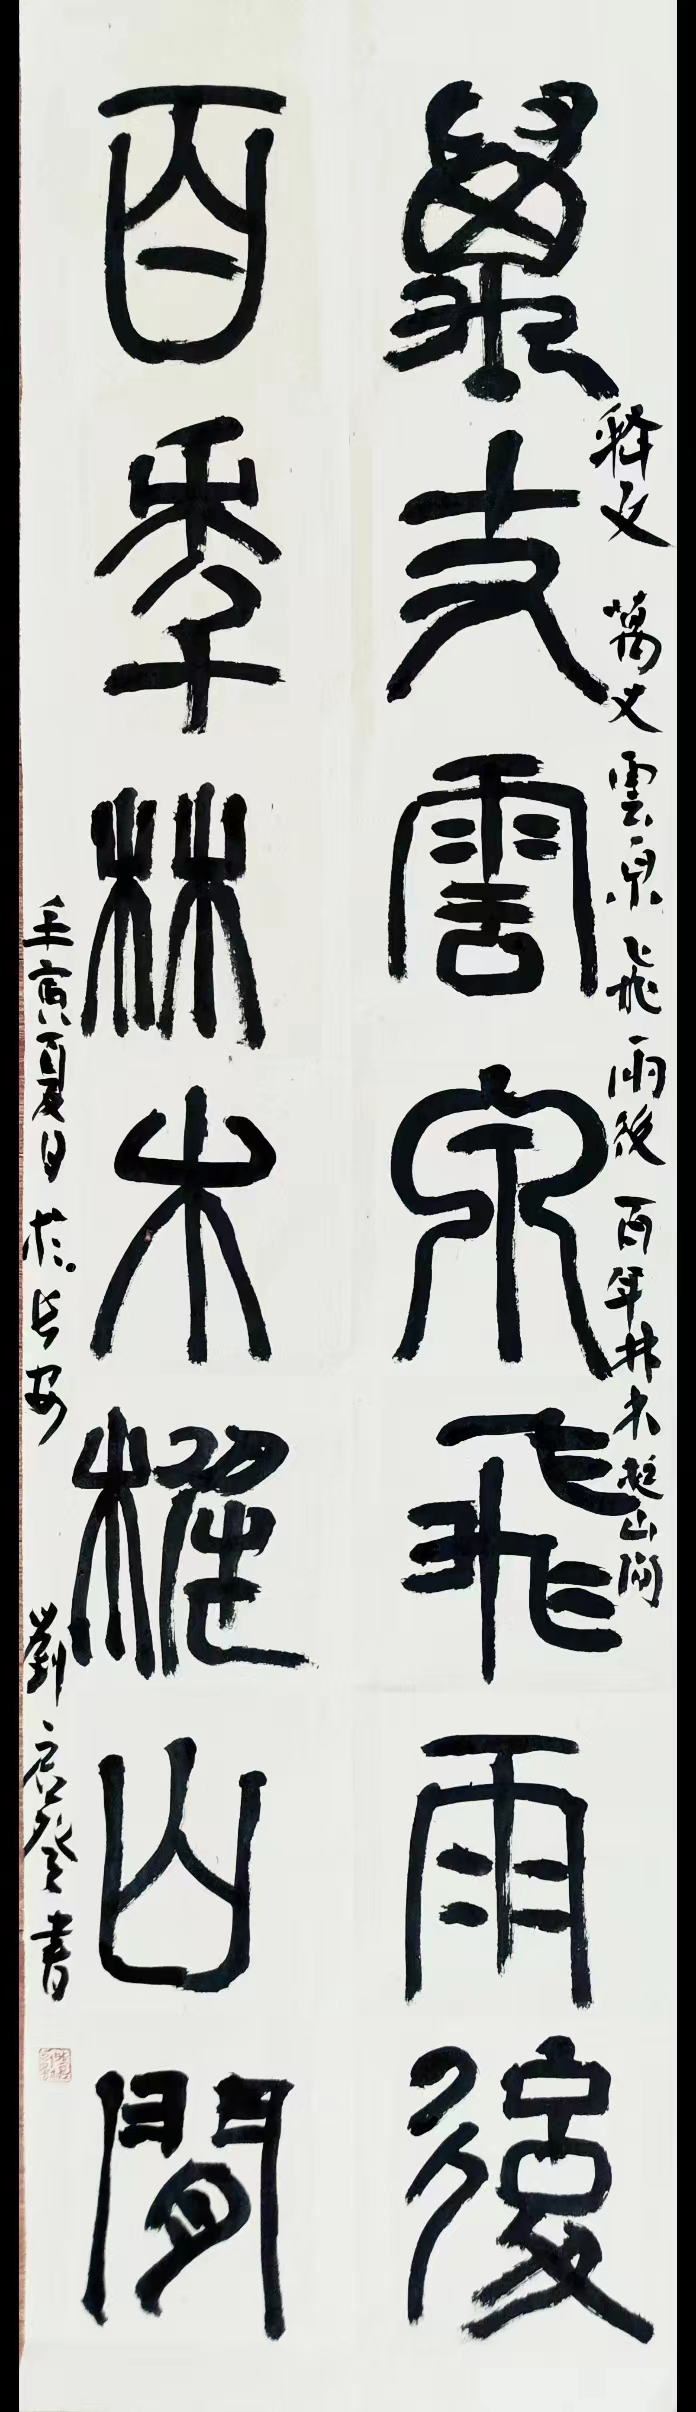 释文 萬丈雲泉飛雨後 百年林木山间
萬丈雲泉飛雨後
百年林木櫂山間
壬寅夏日於长安 劉書